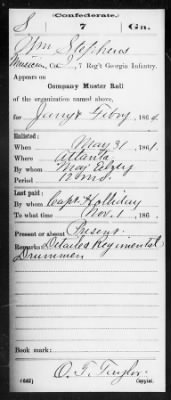 Confederate.
S 7 Ga.
Wm Stephens
Musician, Co. I, 7 Reg't Georgia Infantry.
Appears on
Company Muster Roll
of the organization named above,
for Jany & Feby, 1864.
Enlisted:
When May 31, 1861.
Where Atlanta
By whom Maj
Period 12 mos.
Last paid:
By whom Capt. Holliday
To what time Nov. 1, 186
Present or absent Present
Remarks Detailed Regimental
Drummer
Book mark:
O. T. Taylor
(642) Copyist.